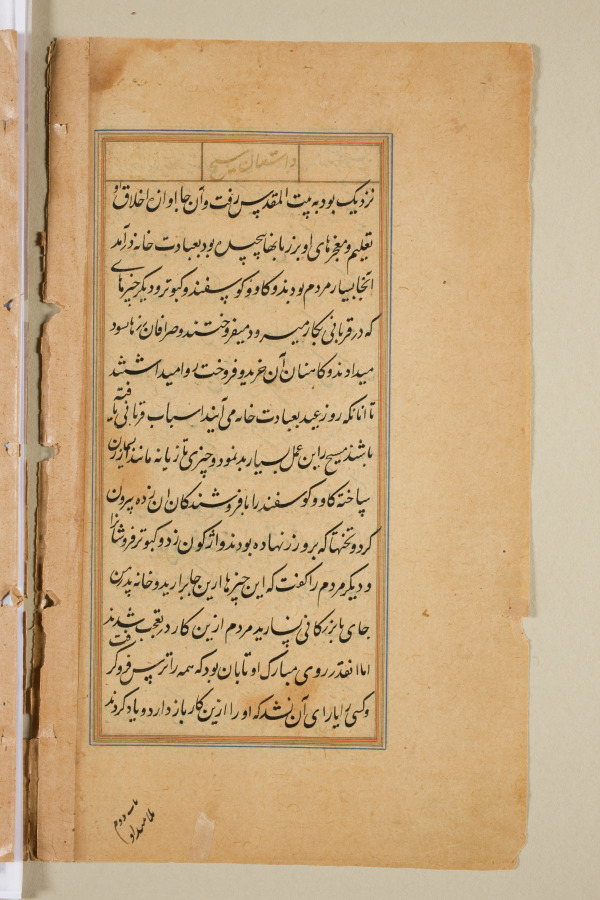 داستان مسیح
نزدیک بود به بیت المقدس رفت و آن جا آوازه اخلاق او
تعلیم و معجزهای او بر زبانها پیچیده بود بعبادت خانه درآمد
آنجا بسیار مردم بودند و کاو و کوسفند و کبوتر و دیکر چیزهای
که در قربانی بکار میرود میفروختند و صرافان زرها سود
میدادند و کاهنان آن خرید و فروخت روا میداشتند
تا آنانکه روز عید بعبادت خانه می آیند اسباب قربانی یافته
باشند مسیح را این عمل بسیار بد نمود و چیزی تازیانه مانند از
ساخته کاو و کوسفند را با فروشندکان آن زده بیرون
کرد و تختها که برو زر نهاده بودند واژکون زد و کبوتر فروشانرا
و دیکر مردم را کفت که این چیزها ازین جا برارید و خانه پدر من
جای بازرکانی نسازید مردم ازین کار در تعجب شدند
اما آنقدر روی مبارک او تابان بود که همه را ترس فروکرفت
و کسی را یارای آن نشد که او را ازین کار باز دارد و یاد کردند